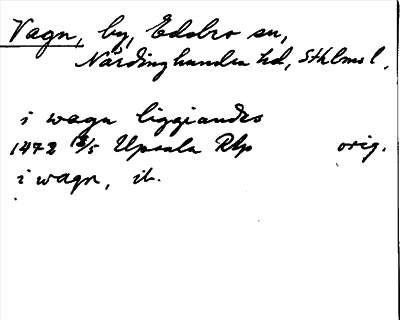 Vagn, by, Edsbro sn,
Närdinghundra hd, Sthlms l.
i wagn liggiandes
1472 8/5 Upsala RAp orig.
i wagn, ib.